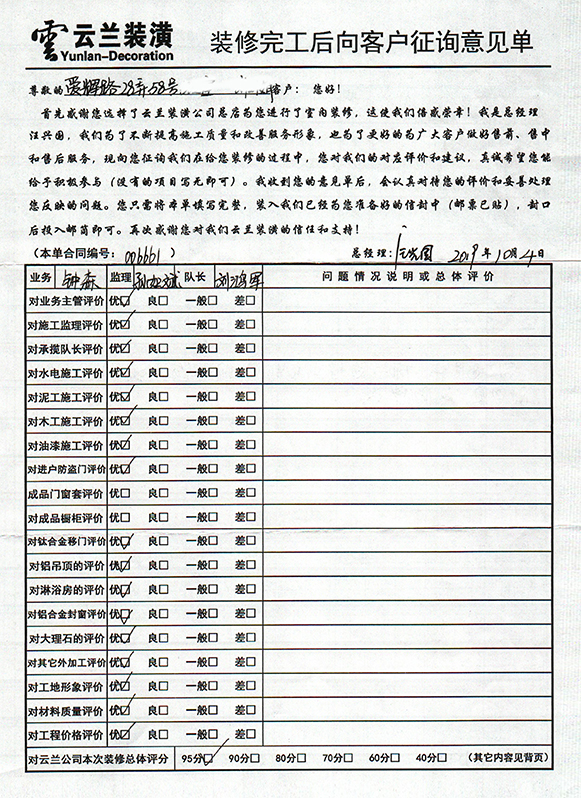 雲 云兰装潢
Yunlan-Decoration
装修完工后向客户征询意见单
尊敬的爱辉路28弄58号 客户： 您好！
首先感谢您选择了云兰装潢公司总店为您进行了室内装修，这使我们倍感荣幸！我是总经理
汪兴国，我们为了不断提高施工质量和改善服务形象，也为了更好的为广大客户做好售前、售中
和售后服务，现向您征询我们在给您装修的过程中，您对我们的对应评价和建议，真诚希望您能
给予积极参与（没有的项目写无即可）。我收到您的意见单后，会认真对待您的评价和妥善处理
您反映的问题。您只需将本单填写完整，装入我们已经为您准备好的信封中（邮票已贴），封口
后投入邮筒即可。再次感谢您对我们云兰装潢的信任和支持！
（本单合同编号：006661） 总经理：汪兴国 2019年10月4日
业务 钟森 监理 队长 刘鸿军 问题情况说明或总体评价
对业务主管评价 优☑ 良□ 一般□ 差□
对施工监理评价 优☑ 良□ 一般□ 差□
对承揽队长评价 优☑ 良□ 一般□ 差□
对水电施工评价 优☑ 良□ 一般□ 差□
对泥工施工评价 优☑ 良□ 一般□ 差□
对木工施工评价 优☑ 良□ 一般□ 差□
对油漆施工评价 优☑ 良□ 一般□ 差□
对进户防盗门评价 优☑ 良□ 一般□ 差□
成品门窗套评价 优□ 良□ 一般□ 差□
对成品橱柜评价 优□ 良□ 一般□ 差□
对钛合金移门评价 优☑ 良□ 一般□ 差□
对铝吊顶的评价 优☑ 良□ 一般□ 差□
对淋浴房的评价 优☑ 良□ 一般□ 差□
对铝合金封窗评价 优☑ 良□ 一般□ 差□
对大理石的评价 优☑ 良□ 一般□ 差□
对其它外加工评价 优☑ 良□ 一般□ 差□
对工地形象评价 优☑ 良□ 一般□ 差□
对材料质量评价 优☑ 良□ 一般□ 差□
对工程价格评价 优☑ 良□ 一般□ 差□
对云兰公司本次装修总体评分 95分☑ 90分□ 80分□ 70分□ 60分□ 40分□ （其它内容见背页）